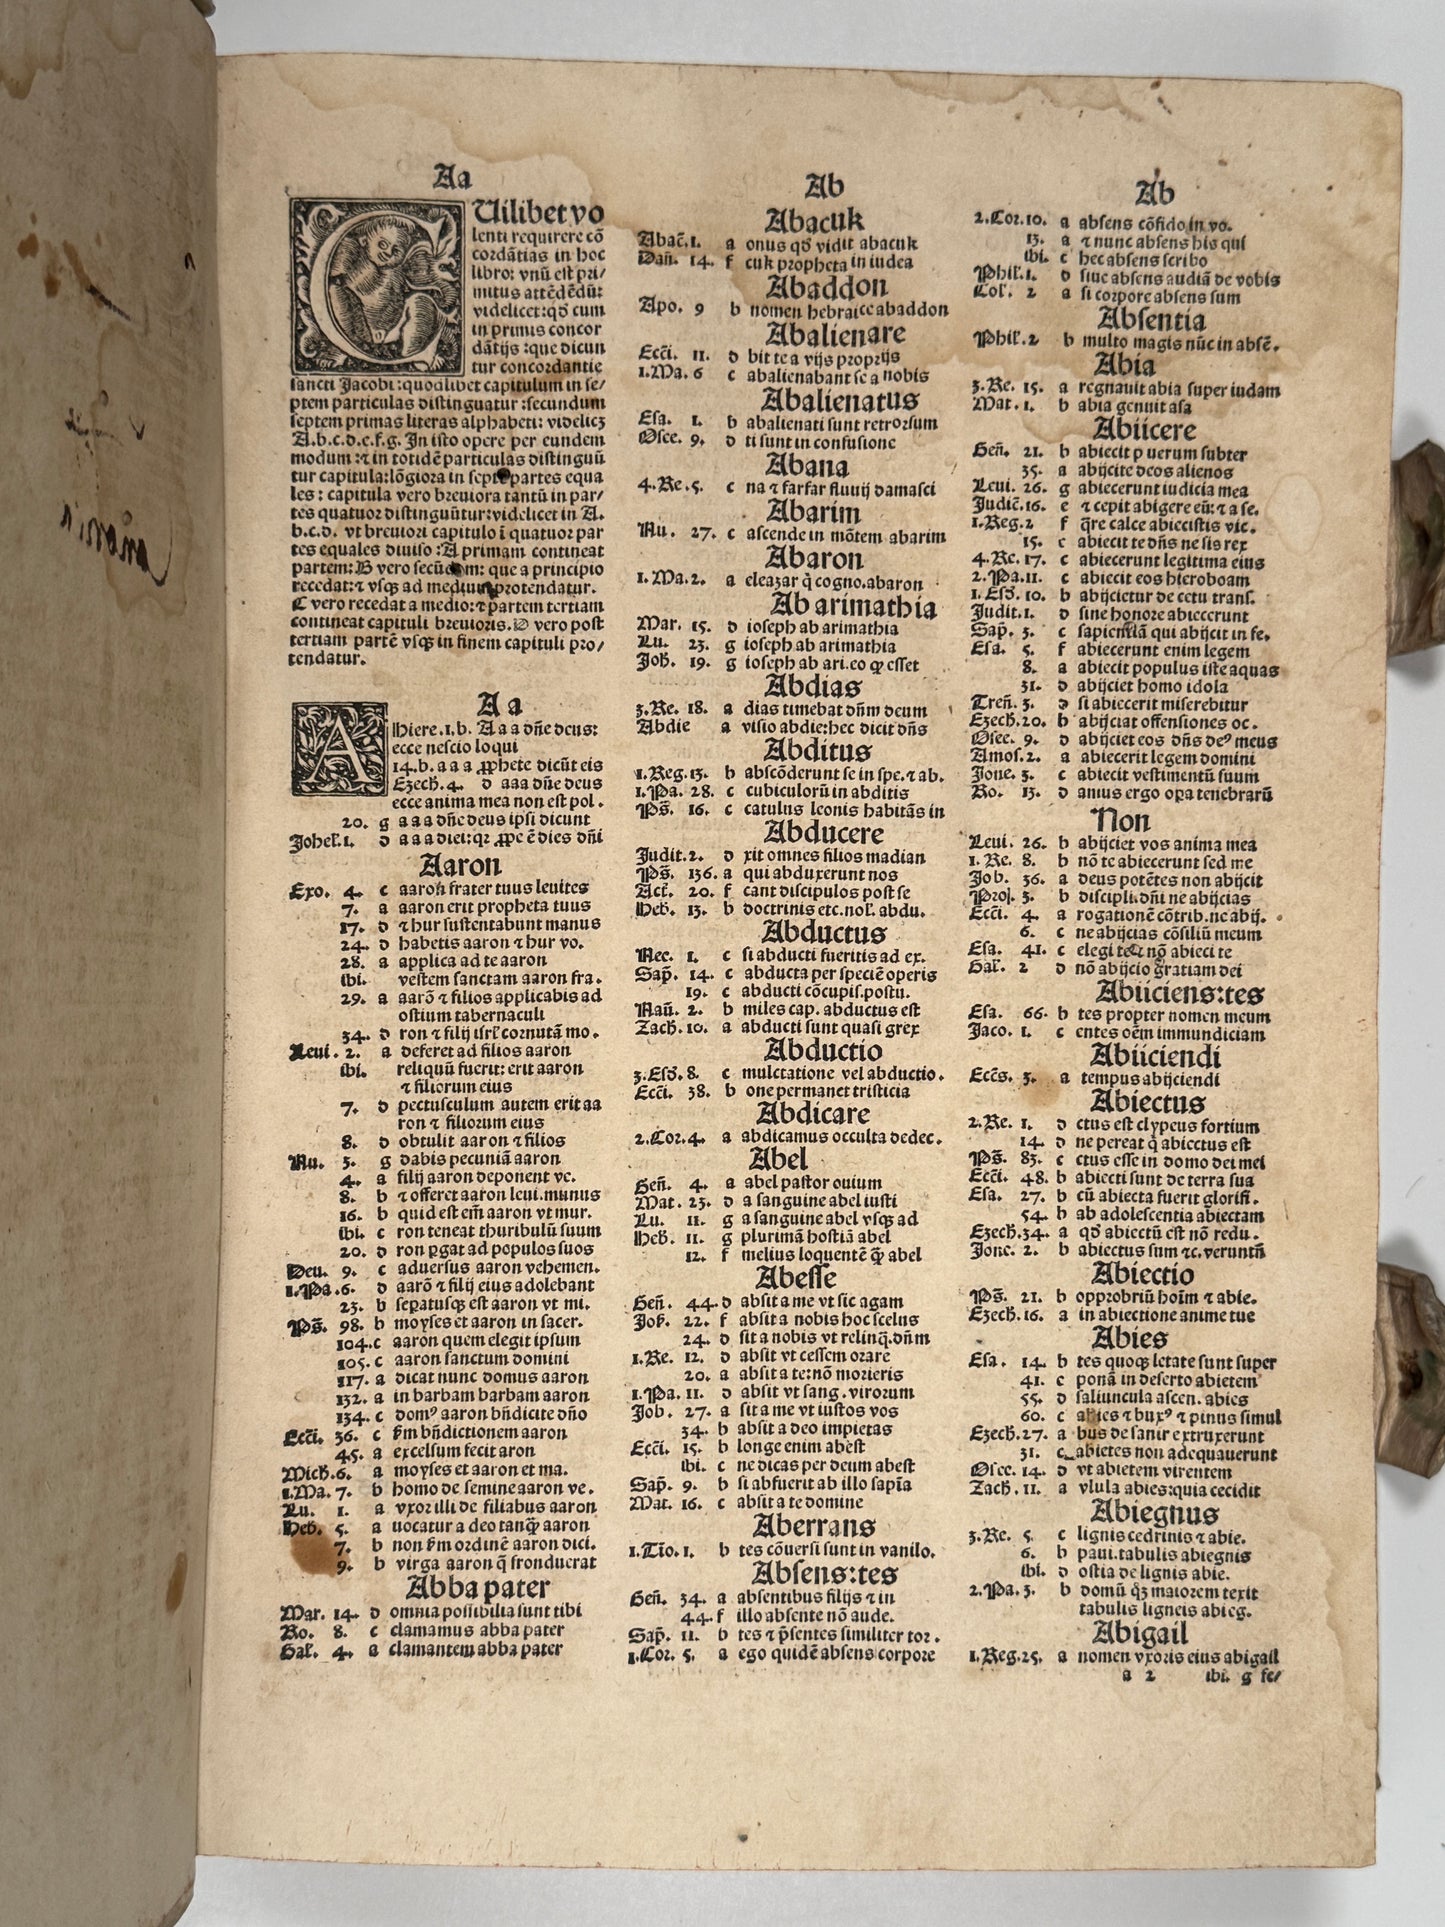 Aa
CUilibet vo
lenti requirere cō
cordātias in hoc
libro: vnū est pri/
mitus attēdēdū:
videlicet: qđ cum
in primis concor
dātijs: que dicun
tur concordantie
sancti Jacobi: quodlibet capitulum in se/
ptem particulas distinguatur: secundum
septem primas literas alphabeti: videlicꝫ
A.b.c.d.e.f.g. In isto opere per eundem
modum: ⁊ in totidē particulas distinguū
tur capitula: lōgiora in septē partes equa
les: capitula vero breuiora tantū in par/
tes quatuor distinguūtur: videlicet in A.
b.c.d. vt breuiori capitulo ī quatuor par
tes equales diuiso: A primam contineat
partem: B vero secūdam: que a principio
recedat: ⁊ vsqꝫ ad medium protendatur.
C vero recedat a medio: ⁊ partem tertiam
contineat capituli breuioris. D vero post
tertiam partē vsqꝫ in finem capituli pro/
tendatur.
Aa
A Ihiere.1.b. A a a dn̄e deus:
ecce nescio loqui
14.b. a a a ꝓphete dicūt eis
Ezech̄.4. d aaa dn̄e deus
ecce anima mea non est pol.
20. g a a a dn̄e deus ipsi dicunt
Johel̄.1. d a a a diei: qꝛ ꝓpe ē dies dn̄i
Aaron
Exo. 4. c aaron frater tuus leuites
7. a aaron erit propheta tuus
17. d ⁊ hur sustentabunt manus
24. d habetis aaron ⁊ hur vo.
28. a applica ad te aaron
ibi. vestem sanctam aaron fra.
29. a aarō ⁊ filios applicabis ad
ostium tabernaculi
34. d ron ⁊ filij isrl̄ cornutā mo.
Leui. 2. a deferet ad filios aaron
ibi. reliquū fuerit: erit aaron
⁊ filiorum eius
7. d pectusculum autem erit aa
ron ⁊ filiorum eius
8. d obtulit aaron ⁊ filios
Nu. 3. g dabis pecuniā aaron
4. a filij aaron deponent vc.
8. b ⁊ offeret aaron leui.munus
16. b quid est em̄ aaron vt mur.
ibi. c ron teneat thuribulū suum
20. d ron ꝑgat ad populos suos
Deu. 9. c aduersus aaron vehemen.
1.Pa.6. d aarō ⁊ filij eius adolebant
23. b seꝑatusqꝫ est aaron vt mi.
Ps̄. 98. b moyses et aaron in sacer.
104. c aaron quem elegit ipsum
105. c aaron sanctum domini
117. a dicat nunc domus aaron
132. a in barbam barbam aaron
134. c domꝰ aaron bn̄dicite dn̄o
Ecc̄i. 36. c ẜm bn̄dictionem aaron
45. a excelsum fecit aron
Mich̄.6. a moyses et aaron et ma.
1.Ma.7. b homo de semine aaron ve.
Lu. 1. a vxor illi de filiabus aaron
Heb̄. 5. a uocatur a deo tanqꝫ̄ aaron
7. b non ẜm ordinē aaron dici.
9. b virga aaron q̄ fronduerat
Abba pater
Mar. 14. d omnia possibilia sunt tibi
Ro. 8. c clamamus abba pater
Gal̄. 4. a clamantem abba pater
Ab
Abacuk
Abac̄.1. a onus qđ vidit abacuk
Dan̄. 14. f cuk propheta in iudea
Abaddon
Apo. 9 b nomen hebraice abaddon
Abalienare
Ecc̄i. 11. d bit te a vijs proprijs
1.Ma.6 c abalienabant se a nobis
Abalienatus
Esa. 1. b abalienati sunt retrorsum
Osee. 9. d ti sunt in confusione
Abana
4.Re.5. c na ⁊ farfar fluuij damasci
Abarim
Nu. 27. c ascende in mōtem abarim
Abaron
1.Ma.2. a eleazar q̇ cogno.abaron
Ab arimathia
Mar. 15. d ioseph ab arimathia
Lu. 23. g ioseph ab arimathia
Joh̄. 19. g ioseph ab ari.eo qꝫ esset
Abdias
3.Re. 18. a dias timebat dn̄m deum
Abdie a visio abdie: hec dicit dn̄s
Abditus
1.Reg.13. b abscōderunt se in spe.⁊ ab.
1.Pa. 28. c cubiculorū in abditis
Ps̄. 16. c catulus leonis habitās in
Abducere
Judit.2. d xit omnes filios madian
Ps̄. 136. a qui abduxerunt nos
Act̄. 20. f cant discipulos post se
Heb̄. 13. b doctrinis etc.nol̄.abdu.
Abductus
Nec. 1. c si abducti fueritis ad ex.
Sap̄. 14. c abducta per speciē operis
19. c abducti cōcupis.postu.
Naū. 2. b miles cap. abductus est
Zach̄.10. a abducti sunt quasi grex
Abductio
3.Esđ.8. c mulctatione vel abductio.
Ecc̄i. 38. b one permanet tristicia
Abdicare
2.Cor.4. a abdicamus occulta dedec.
Abel
Gen̄. 4. a abel pastor ouium
Mat. 23. d a sanguine abel iusti
Lu. 11. g a sanguine abel vsqꝫ ad
Heb̄. 11. g plurimā hostiā abel
12. f melius loquentē qꝫ̄ abel
Abesse
Gen̄. 44. d absit a me vt sic agam
Jos̄. 22. f absit a nobis hoc scelus
24. d sit a nobis vt relinq̄.dn̄m
1.Re. 12. d absit vt cessem orare
20. a absit a te: nō morieris
1.Pa.11. d absit vt sang.virorum
Job. 27. a sit a me vt iustos vos
34. b absit a deo impietas
Ecc̄i. 15. b longe enim abest
ibi. c ne dicas per deum abest
Sap̄. 9. b si abfuerit ab illo sapīa
Mat. 16. c absit a te domine
Aberrans
1.Tīo.1. b tes cōuersi sunt in vanilo.
Absens:tes
Gen̄. 34. a absentibus filijs ⁊ in
44. f illo absente nō aude.
Sap̄. 11. b tes ⁊ p̄sentes similiter tor.
1.Cor. 5. a ego quidē absens corpore
Ab
2.Cor.10. a absens cōfido in vo.
13. a ⁊ nunc absens his qui
ibi. c hec absens scribo
Phil̄.1. d siue absens audiā de vobis
Col̄. 2 a si corpore absens sum
Absentia
Phil̄.2 b multo magis nūc in absē.
Abia
3.Re. 15. a regnauit abia super iudam
Mat. 1. b abia genuit asa
Abiicere
Gen̄. 21. b abiecit puerum subter
35. a abijcite deos alienos
Leui. 26. g abiecerunt iudicia mea
Judic̄.16. e ⁊ cepit abigere eū: ⁊ a se.
1.Reg.2 f q̄re calce abiecistis vic.
15. c abiecit te dn̄s ne sis rex
4.Re.17. c abiecerunt legitima eius
2.Pa.11. c abiecit eos hieroboam
1.Esđ.10. b abijcietur de cetu trans.
Judit.1. d sine honore abiecerunt
Sap̄. 3. c sapientiā qui abijcit in fe.
Esa. 5. f abiecerunt enim legem
8. a abiecit populus iste aquas
31. d abijciet homo idola
Tren̄. 3. d si abiecerit miserebitur
Ezech̄.20. b abijciat offensiones oc.
Osee. 9. d abijciet eos dn̄s deꝰ meus
Amos.2. a abiecerit legem domini
Jone. 3. c abiecit vestimentū suum
Ro. 13. d amus ergo oꝑa tenebrarū
Non
Leui. 26. b abijciet vos anima mea
1.Re. 8. b nō te abiecerunt sed me
Job. 36. a deus potētes non abijcit
Proꝟ. 3. b discipli.dn̄i ne abijcias
Ecc̄i. 4. a rogationē cōtrib.ne abij.
6. c ne abijcias cōsiliū meum
Esa. 41. c elegi te ⁊ nō abieci te
Gal̄. 2 d nō abijcio gratiam dei
Abiiciens:tes
Esa. 66. b tes propter nomen meum
Jaco. 1. c entes oēm immundiciam
Abiiciendi
Ecc̄s. 3. a tempus abijciendi
Abiectus
2.Re. 1. d ctus est clypeus fortium
14. d ne pereat q̇ abiectus est
Ps̄. 83. c ctus esse in domo dei mei
Ecc̄i. 48. b abiecti sunt de terra sua
Esa. 27. b cū abiecta fuerit glorifi.
54. b ab adolescentia abiectam
Ezech̄.34. a qđ abiectū est nō redu.
Jone. 2. b abiectus sum ⁊c.veruntn̄
Abiectio
Ps̄. 21. b opprobriū hoīm ⁊ abie.
Ezech̄.16. a in abiectione anime tue
Abies
Esa. 14. b tes quoqꝫ letate sunt super
41. c ponā in deserto abietem
55. d saliuncula ascen. abies
60. c abies ⁊ buxꝰ ⁊ pinus simul
Ezech̄.27. a bus de sanir extruxerunt
31. c abietes non adequauerunt
Osee. 14. d vt abietem virentem
Zach̄. 11. a vlula abies: quia cecidit
Abiegnus
3.Re. 5. c lignis cedrinis ⁊ abie.
6. b paui.tabulis abiegnis
ibi. d ostia de lignis abie.
2.Pa.3. b domū qꝫ maiorem texit
tabulis ligneis abieg.
Abigail
1.Reg.25. a nomen vxoris eius abigail
a 2 ibi. g fe/